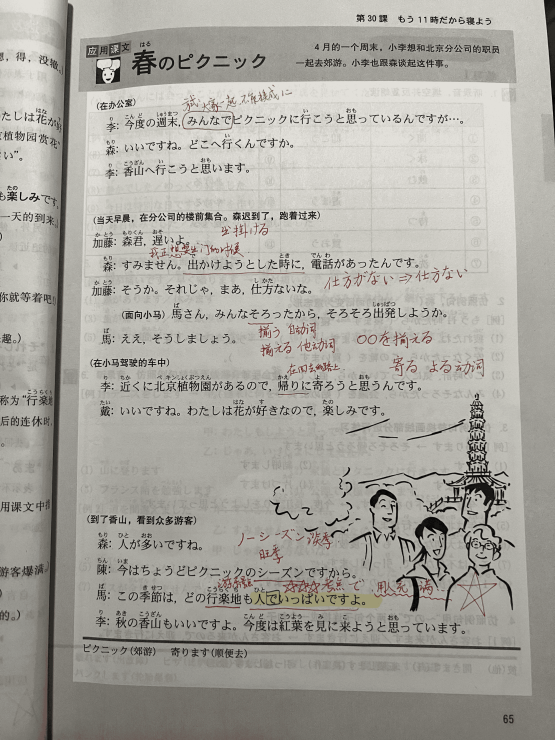 第30課 もう11時だから寝よう
应用课文
春のピクニック
4月的一个周末，小李想和北京分公司的职员
一起去郊游。小李也跟森谈起这件事。
(在办公室)
李：今度の週末，みんなでピクニックに行こうと思っているんですが…。
森：いいですね。どこへ行くんですか。
李：香山へ行こうと思います。
(当天早晨，在分公司的楼前集合。森迟到了，跑着过来)
出掛ける
加藤：森君，遅いよ。
森：すみません。出かけようとした時に，電話があったんです。
仕方がない⇒仕方ない
加藤：そうか。それじゃ，まあ，仕方ないな。
(面向小马) 馬さん，みんなそろったから，そろそろ出発しようか。
揃う 自动词
馬：ええ，そうしましょう。
揃える 他动词
〇〇を揃える
(在小马驾驶的车中)
寄る よる动词
李：近くに北京植物園があるので，帰りに寄ろうと思うんです。
戴：いいですね。わたしは花が好きなので，楽しみです。
(到了香山，看到众多游客)
ノーシーズン 淡季
森：人が多いですね。
旺季
陳：今はちょうどピクニックのシーズンですから。
馬：この季節は，どの行楽地も人でいっぱいですよ。
李：秋の香山もいいですよ。今度は紅葉を見に来ようと思っています。
ピクニック(郊游) 寄ります(顺便去)
65